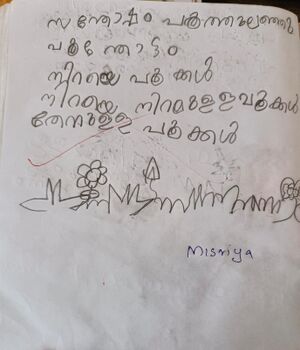 സന്തോഷം പൂത്തുലഞ്ഞു
പൂന്തോട്ടം
നിറയെ പൂക്കൾ
നിറയെ നിറമുള്ള പൂക്കൾ
തേനുള്ള പൂക്കൾ
Misriya